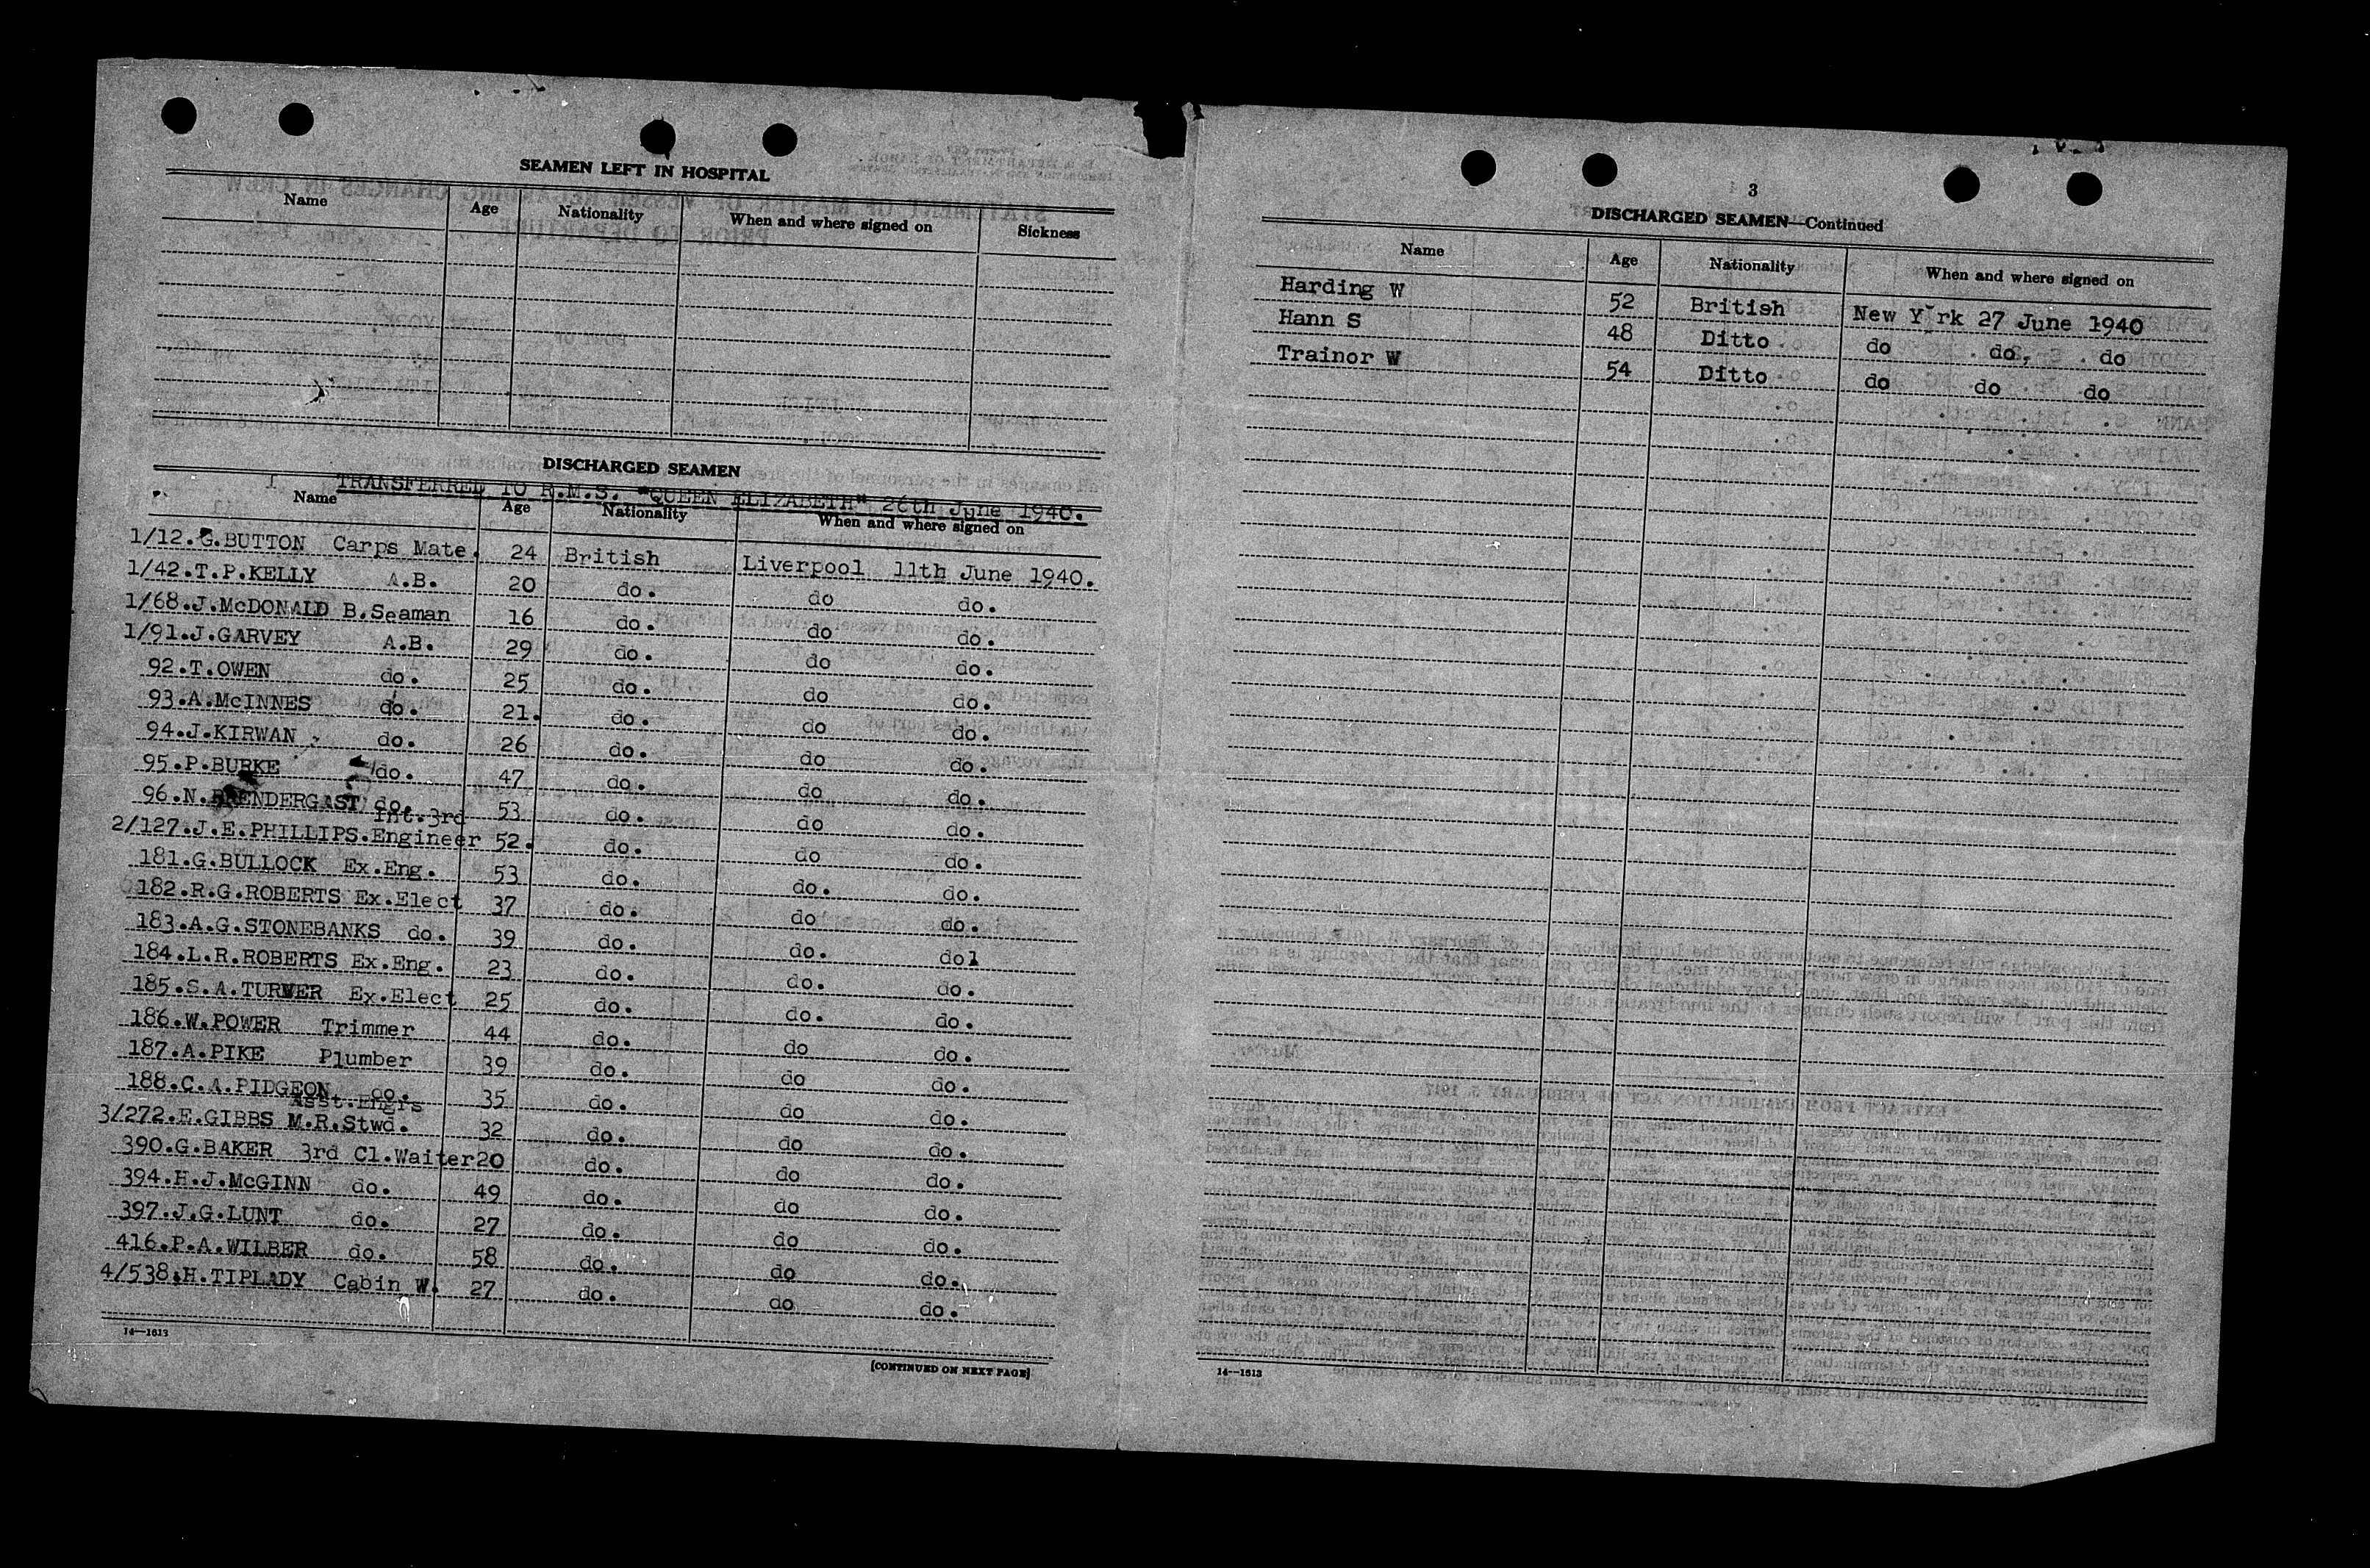 SEAMEN LEFT IN HOSPITAL
Name Age Nationality When and where signed on Sickness
DISCHARGED SEAMEN
TRANSFERRED TO R.M.S. "QUEEN ELIZABETH" 26th June 1940.
Name Age Nationality When and where signed on
1/12.G.BUTTON Carps Mate. 24 British Liverpool 11th June 1940.
1/42.T.P.KELLY A.B. 20 do. do do.
1/68.J.McDONALD B.Seaman 16 do. do do.
1/91.J.GARVEY A.B. 29 do. do do.
92.T.OWEN do. 25 do. do do.
93.A.McINNES do. 21. do. do do.
94.J.KIRWAN do. 26 do. do do.
95.P.BURKE do. 47 do. do do.
96.N.PRENDERGAST do. 53 do. do do.
Int.3rd
2/127.J.E.PHILLIPS.Engineer 52. do. do do.
181.G.BULLOCK Ex.Eng. 53 do. do. do.
182.R.G.ROBERTS Ex.Elect 37 do. do do.
183.A.G.STONEBANKS do. 39 do. do. do1
184.L.R.ROBERTS Ex.Eng. 23 do. do. do.
185.S.A.TURNER Ex.Elect 25 do. do. do.
186.W.POWER Trimmer 44 do. do do.
187.A.PIKE Plumber 39 do. do do.
188.C.A.PIDGEON do. 35 do. do do.
Asst.Engrs
3/272.E.GIBBS M.R.Stwd. 32 do. do do.
390.G.BAKER 3rd Cl.Waiter 20 do. do do.
394.H.J.McGINN do. 49 do. do do.
397.J.G.LUNT do. 27 do. do do.
416.P.A.WILBER do. 58 do. do do.
4/538.H.TIPLADY Cabin W. 27 do. do do.
14—1613
[CONTINUED ON NEXT PAGE]
3
DISCHARGED SEAMEN—Continued
Name Age Nationality When and where signed on
Harding W 52 British New Y rk 27 June 1940
Hann S 48 Ditto do do, do
Trainor W 54 Ditto do do do
14—1613